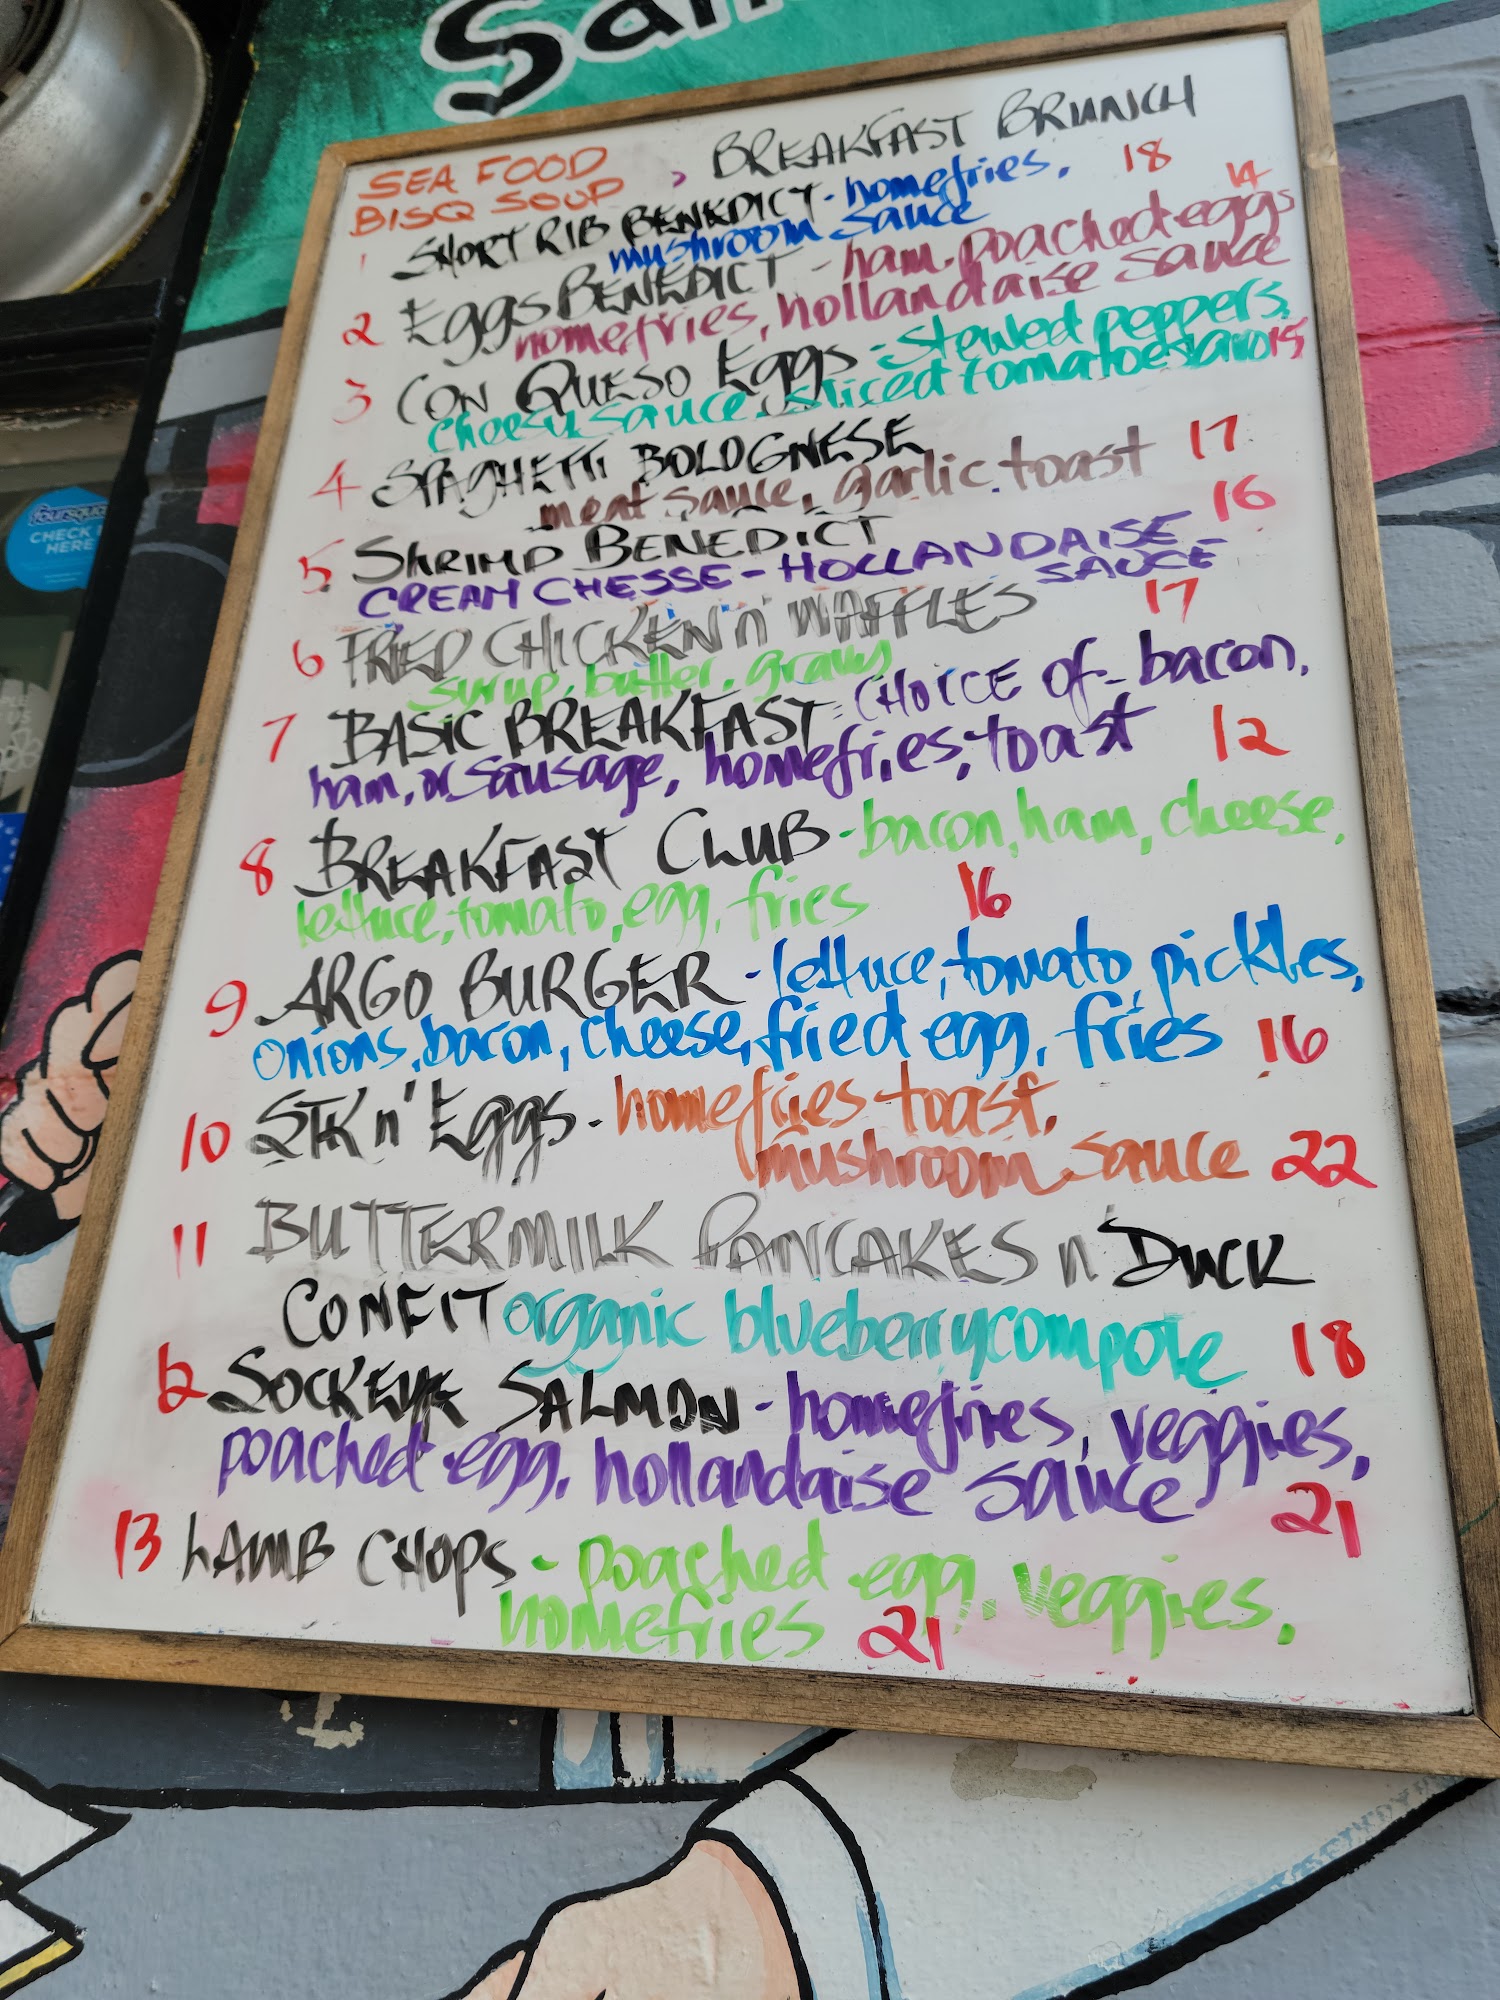 San
BREAKFAST BRUNCH
SEA FOOD
BISQ SOUP
1 SHORT RIB BENEDICT - homefries, 18
mushroom sauce
2 EggS BENEDICT - ham. poached eggs 14
homefries, hollandaise sauce
3 CON QUESO Eggs - stewed peppers,
cheesy sauce, sliced tomatoes 15
4 SPAGHETTI BOLOGNESE 17
meat sauce, garlic toast
5 SHRIMP BENEDICT 16
CREAM CHESSE - HOLLANDAISE -
SAUCE
6 FRIED CHICKEN n' WAFFLES 17
syrup, butter, gravy
7 BASIC BREAKFAST - CHOICE of - bacon,
ham, or sausage, homefries, toast 12
8 BREAKFAST CLUB - bacon, ham, cheese,
lettuce, tomato, egg, fries 16
9 ARGO BURGER - lettuce, tomato, pickles,
onions, bacon, cheese, fried egg, fries 16
10 STK n' Eggs - homefries toast,
mushroom sauce 22
11 BUTTERMILK PANCAKES n DUCK
CONFIT organic blueberry compote 18
12 SOCKEYE SALMON - homefries, veggies,
poached egg, hollandaise sauce 21
13 LAMB CHOPS - poached egg, veggies,
homefries 21
foursqua
CHECK
HERE